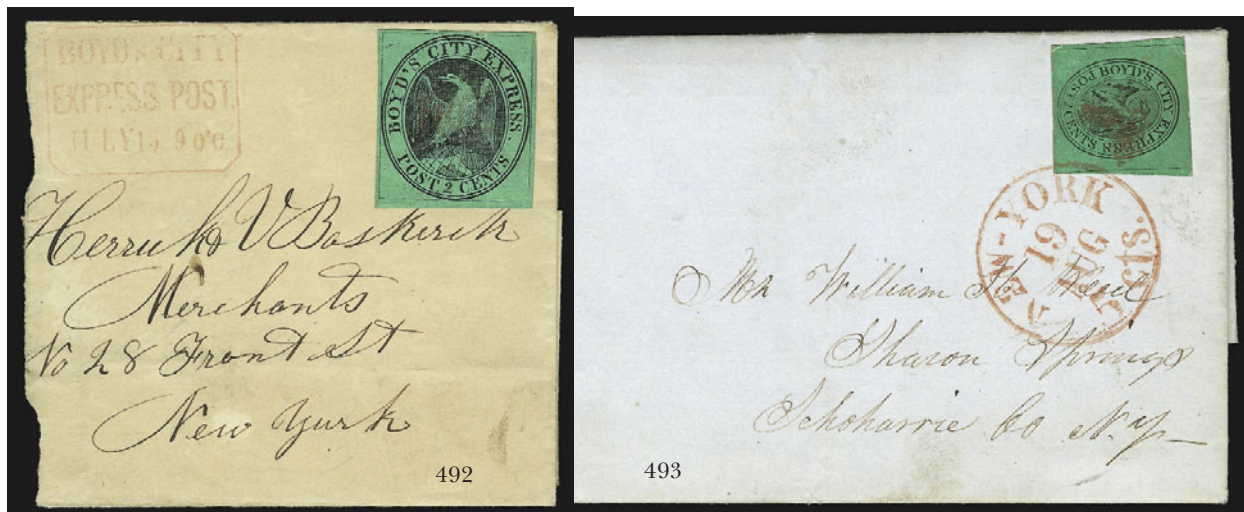 BOYD'S CITY
EXPRESS POST.
JULY 15 9 o'c.
BOYD'S CITY EXPRESS.
POST 2 CENTS
Merchants
No 28 Front St
New York
492
BOYD'S CITY EXPRESS
POST 2 CENTS
NEW-YORK
19
AUG
5 cts.
Mr William H
Sharon Springs
Schoharrie Co N.Y
493